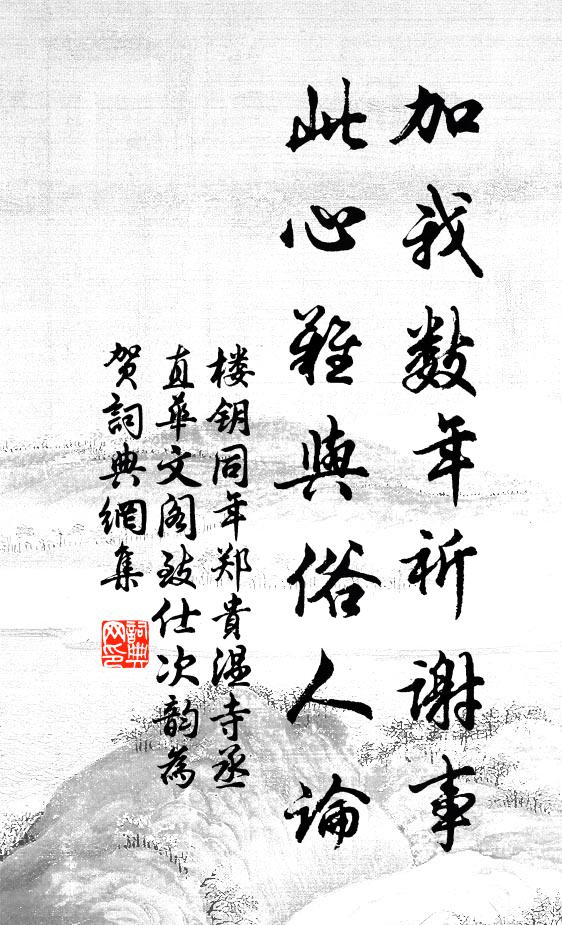 加我数年祈谢事
此心難與俗人論
楼钥同年郑貴温寺丞
直華文阁致仕次韵為
贺詞典網集
詞典网印